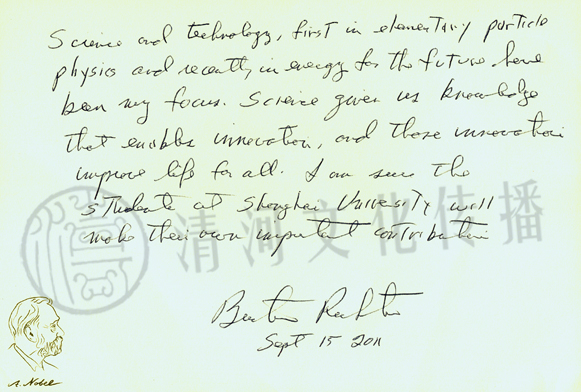 Science and technology, first in elementary particle
physics and recently in energy for the future have
been my focus. Science gives us knowledge
that enables innovation, and those innovations
improve life for all. I am sure the
students at Shanghai University will
make their own important contribution
清河文化传播
Burton Richter
Sept 15 2011
A. Nobel